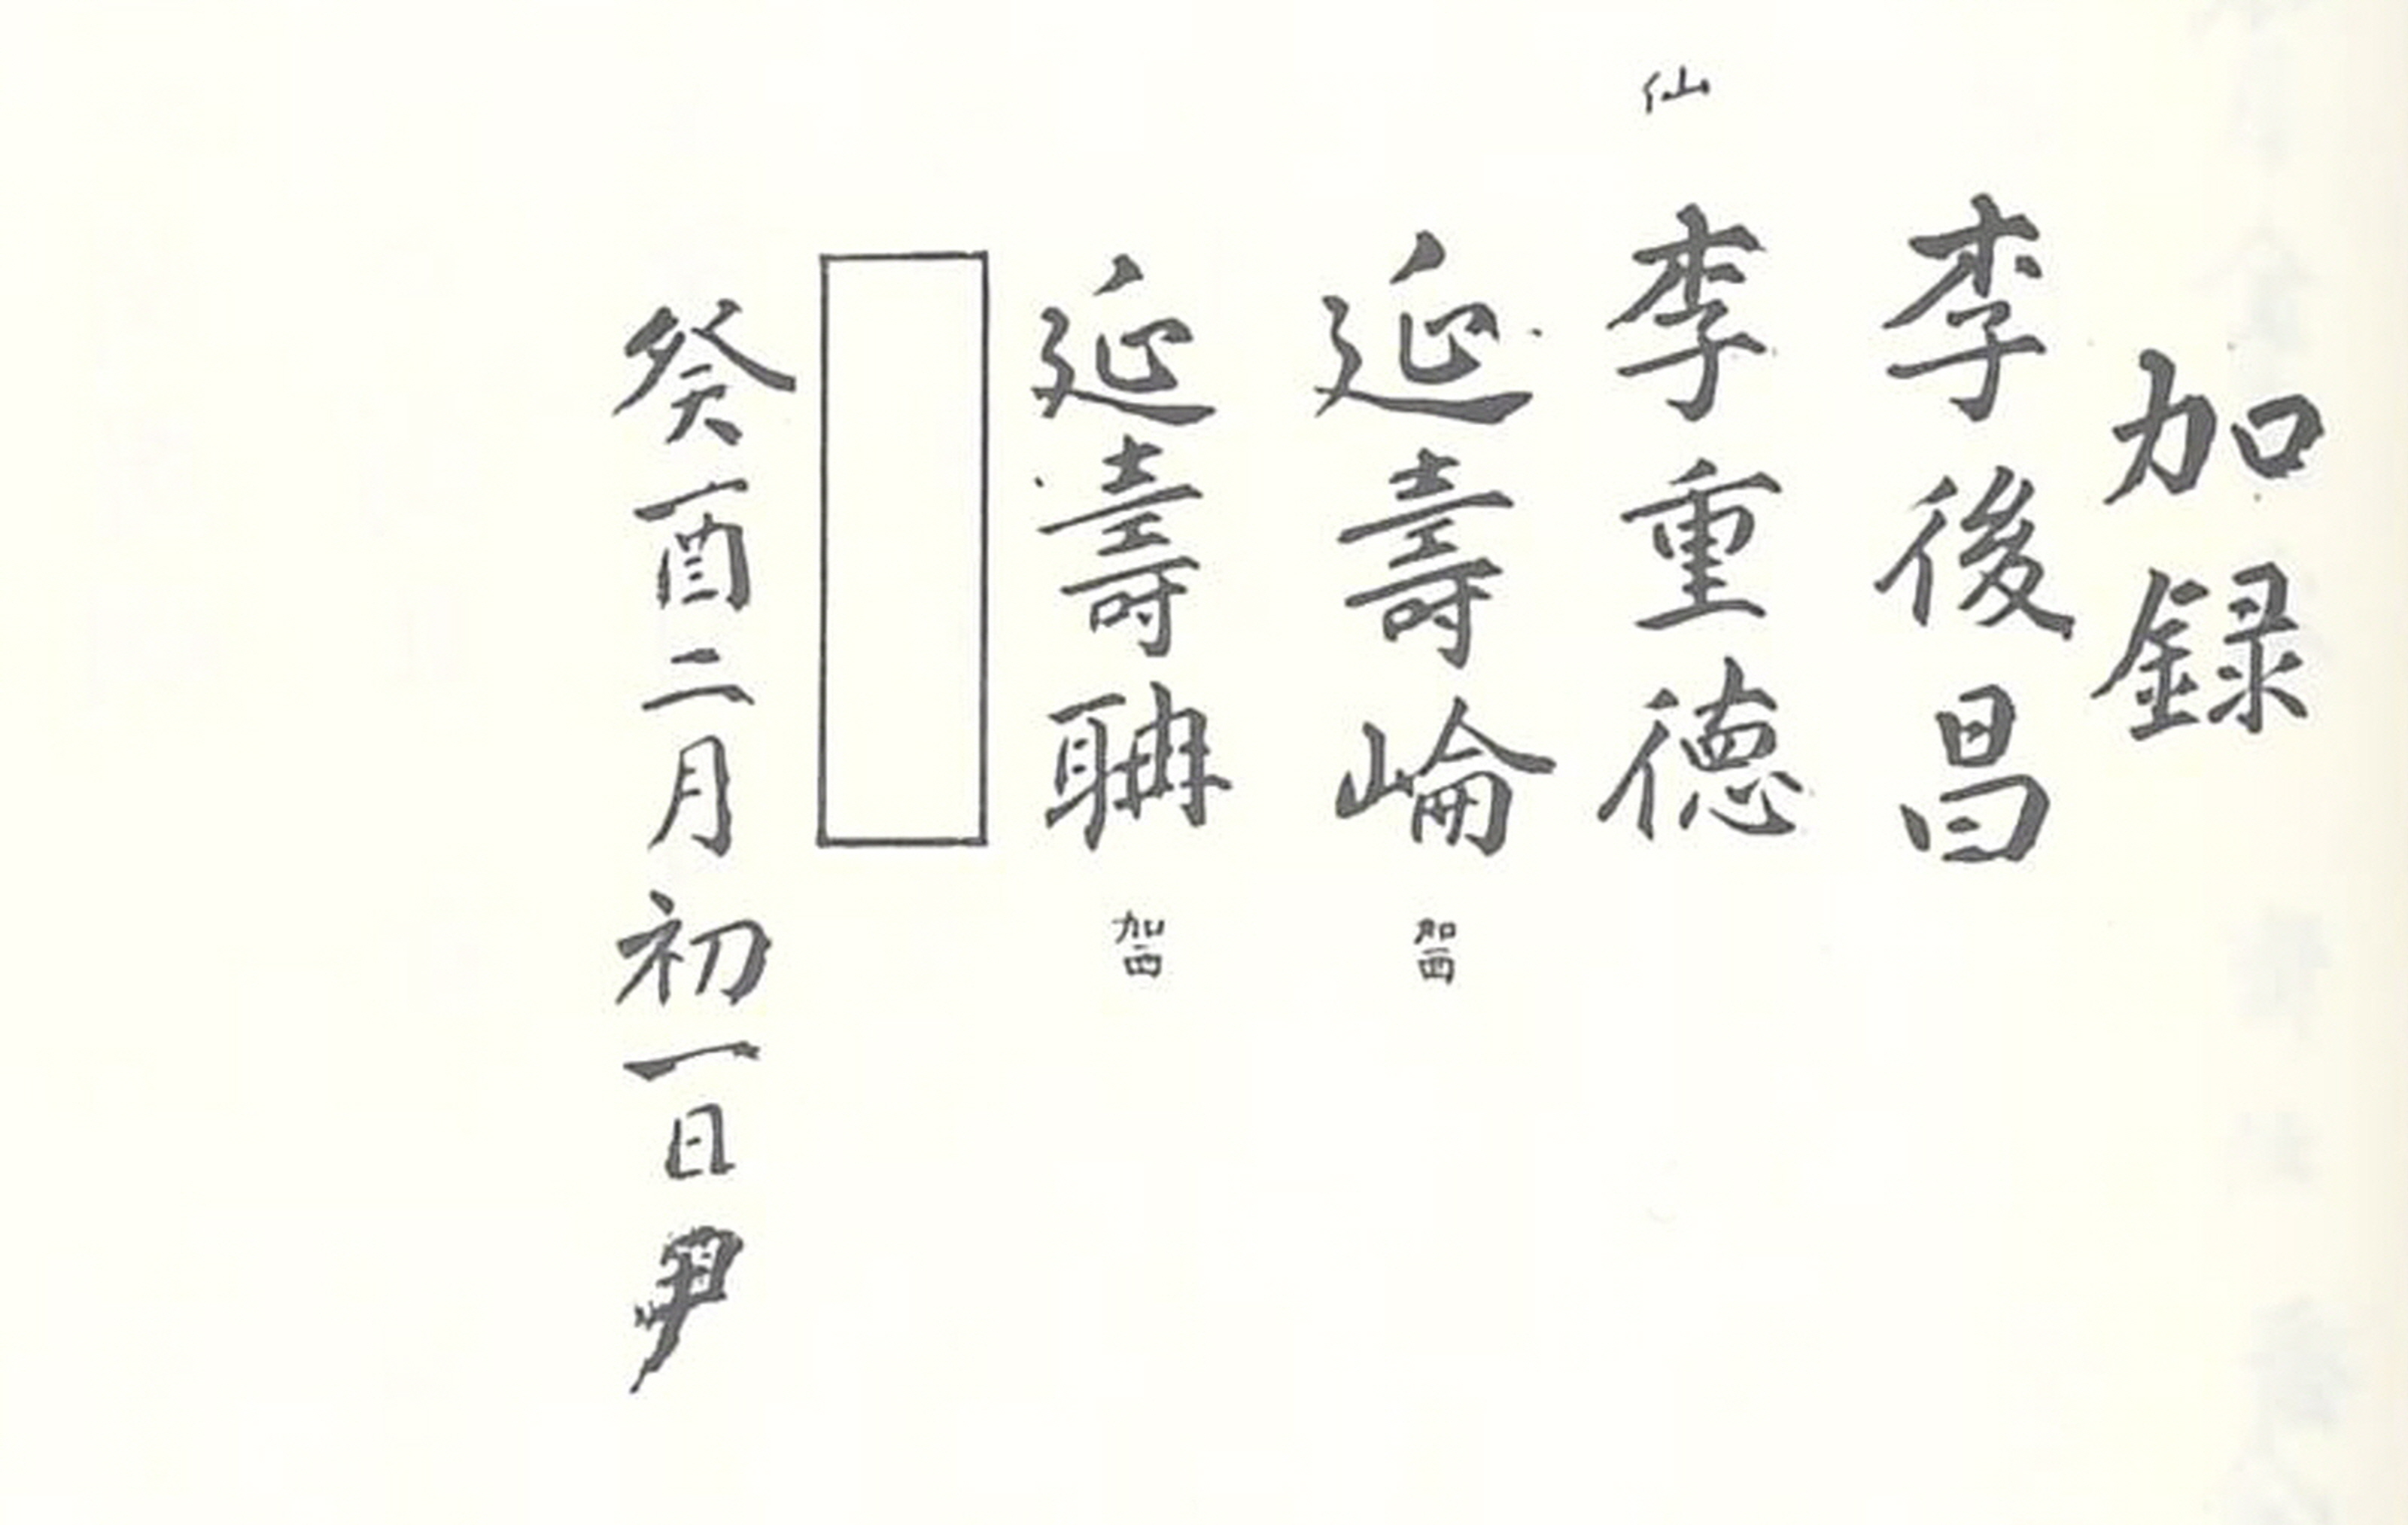 加録
李後昌
仙
李重德
延壽崙
加西
延壽聃
加西
癸酉二月初一日尹